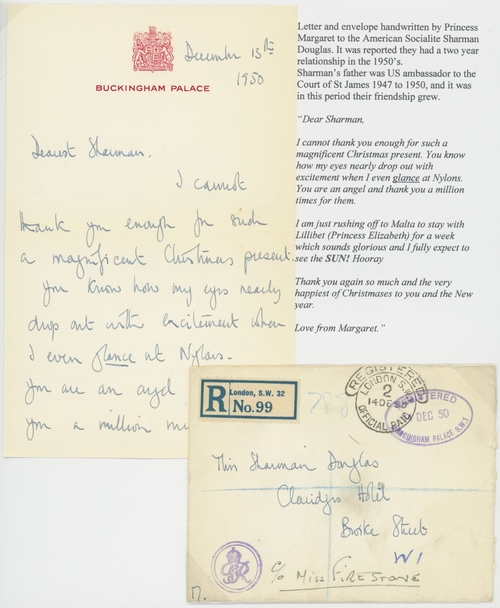 December 13th
1950
BUCKINGHAM PALACE
Dearest Sharman.
I cannot
thank you enough for such
a magnificent Christmas present.
You know how my eyes nearly
drop out with excitement when
I even glance at Nylons.
You are an angel
you a million
Letter and envelope handwritten by Princess
Margaret to the American Socialite Sharman
Douglas. It was reported they had a two year
relationship in the 1950's.
Sharman's father was US ambassador to the
Court of St James 1947 to 1950, and it was
in this period their friendship grew.
"Dear Sharman,
I cannot thank you enough for such a
magnificent Christmas present. You know
how my eyes nearly drop out with
excitement when I even glance at Nylons.
You are an angel and thank you a million
times for them.
I am just rushing off to Malta to stay with
Lillibet (Princess Elizabeth) for a week
which sounds glorious and I fully expect to
see the SUN! Hooray
Thank you again so much and the very
happiest of Christmases to you and the New
year.
Love from Margaret."
R London, S.W. 32
No. 99
REGISTERED
LONDON S.W.
2
14 DE 50
OFFICIAL PAID
DEC 50
BUCKINGHAM PALACE S.W.1
Miss Sharman Douglas
Claridges Hotel
Brooke Street
W1
c/o MISS FIRESTONE